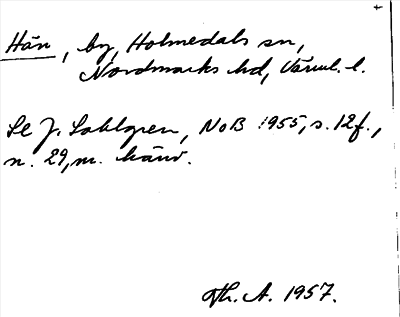 Hän, by, Holmedals sn,
Nordmarks hd, Värml. l.
Se J. Sahlgren, NoB 1955, s. 12f.,
n. 29, m. hänv.
Th. A. 1957.